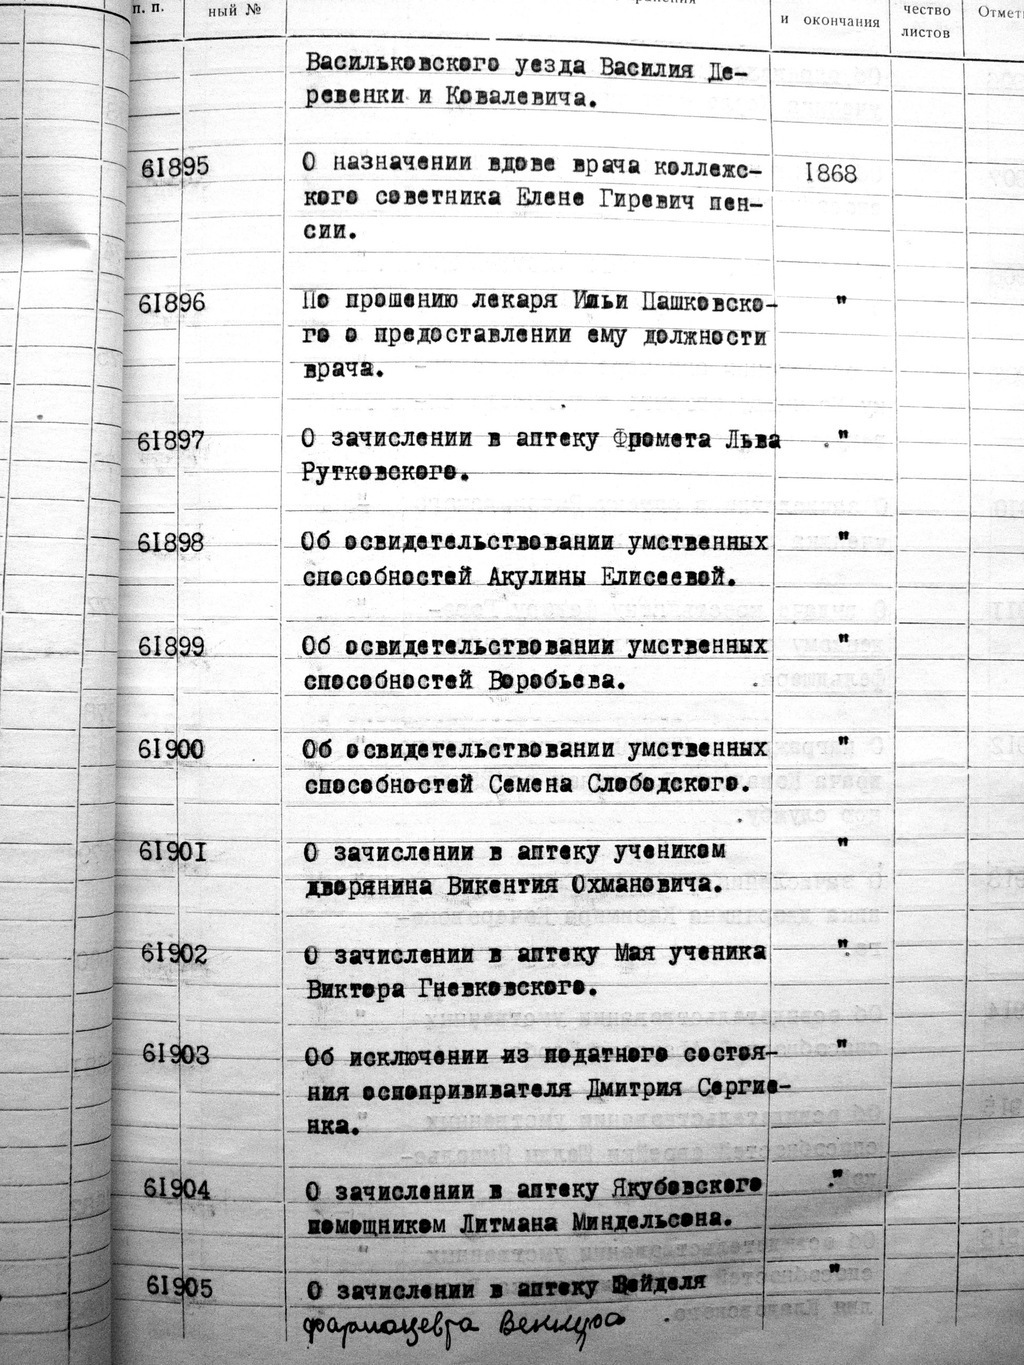 п. п.
ный №
и окончания
чество
листов
Отмет
Васильковского уезда Василия Де-
ревенки и Ковалевича.
61895 О назначении вдове врача коллежс- 1868
кого советника Елене Гиревич пен-
сии.
61896 По прошению лекаря Ильи Пашковско- "
го о предоставлении ему должности
врача.
61897 О зачислении в аптеку Фромета Льва "
Рутковского.
61898 Об освидетельствовании умственных "
способностей Акулины Елисеевой.
61899 Об освидетельствовании умственных "
способностей Воробьева.
61900 Об освидетельствовании умственных "
способностей Семена Слободского.
61901 О зачислении в аптеку учеником "
дворянина Викентия Охмановича.
61902 О зачислении в аптеку Мая ученика "
Виктора Гневковского.
61903 Об исключении из податного состоя- "
ния оспопрививателя Дмитрия Сергие-
нка.
61904 О зачислении в аптеку Якубовского "
помощником Литмана Миндельсона.
61905 О зачислении в аптеку Шейделя "
фармацевта